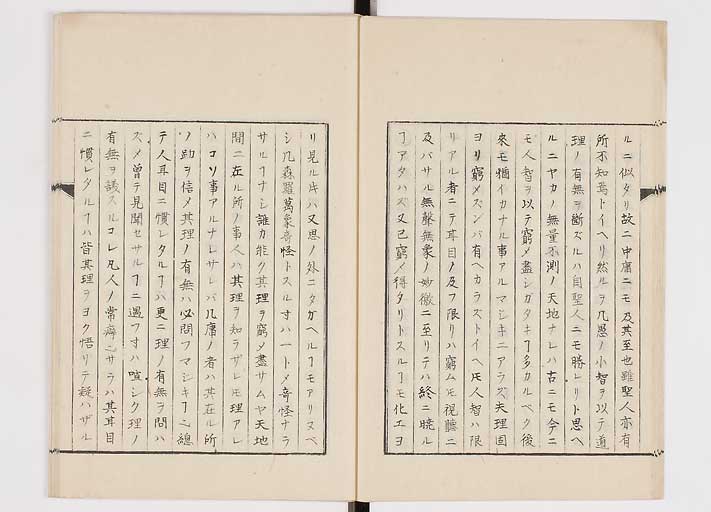 ルニ似タリ故ニ中庸ニモ及其至也雖聖人亦有
所不知焉トイヘリ然ルヲ凡愚ノ小智ヲ以テ道
理ノ有無ヲ斷ズルハ自聖人ニモ勝レリト思ヘ
ルニヤカノ無量不測ノ天地ナレハ古ニモ今ニ
モ人智ヲ以テ窮メ盡シガタキヿ多カルベク後
來モ猶イカナル事アルマシキニアラズ夫理固
ヨリ窮メズンバ有ヘカラズトイヘ𪜈人智ハ限
リアル者ニテ耳目ノ及フ限リハ窮ム𪜈視聽ニ
及バサル無聲無象ノ妙微ニ至リテハ終ニ曉ル
ヿアタハズ又已窮メ得タリトスルヿモ化工ヨ
リ見ル片ハ又思ノ外ニタガヘルヿモアリヌベ
シ凡森羅萬象奇怪トスル寸ハ一トメ奇怪ナラ
サルヿナシ誰カ能ク其理ヲ窮メ盡サムヤ天地
間ニ在ル所ノ事人ハ其理ヲ知ラザレ𪜈理アレ
ハコソ事アルナレサレバ几席ノ者ハ其在ル所
ノ跡ヲ信メ其理ノ有無ハ必問フマシキヿ也總
テ人耳目ニ慣レタルヿハ更ニ理ノ有無ヲ問ハ
ズメ曾テ見聞セサルヿニ遇フ寸ハ喧シク理ノ
有無ヲ議スルコレ凡人ノ常癖也サラハ其耳目
ニ慣レタルヿハ皆其理ヲヨク悟リテ疑ハザル